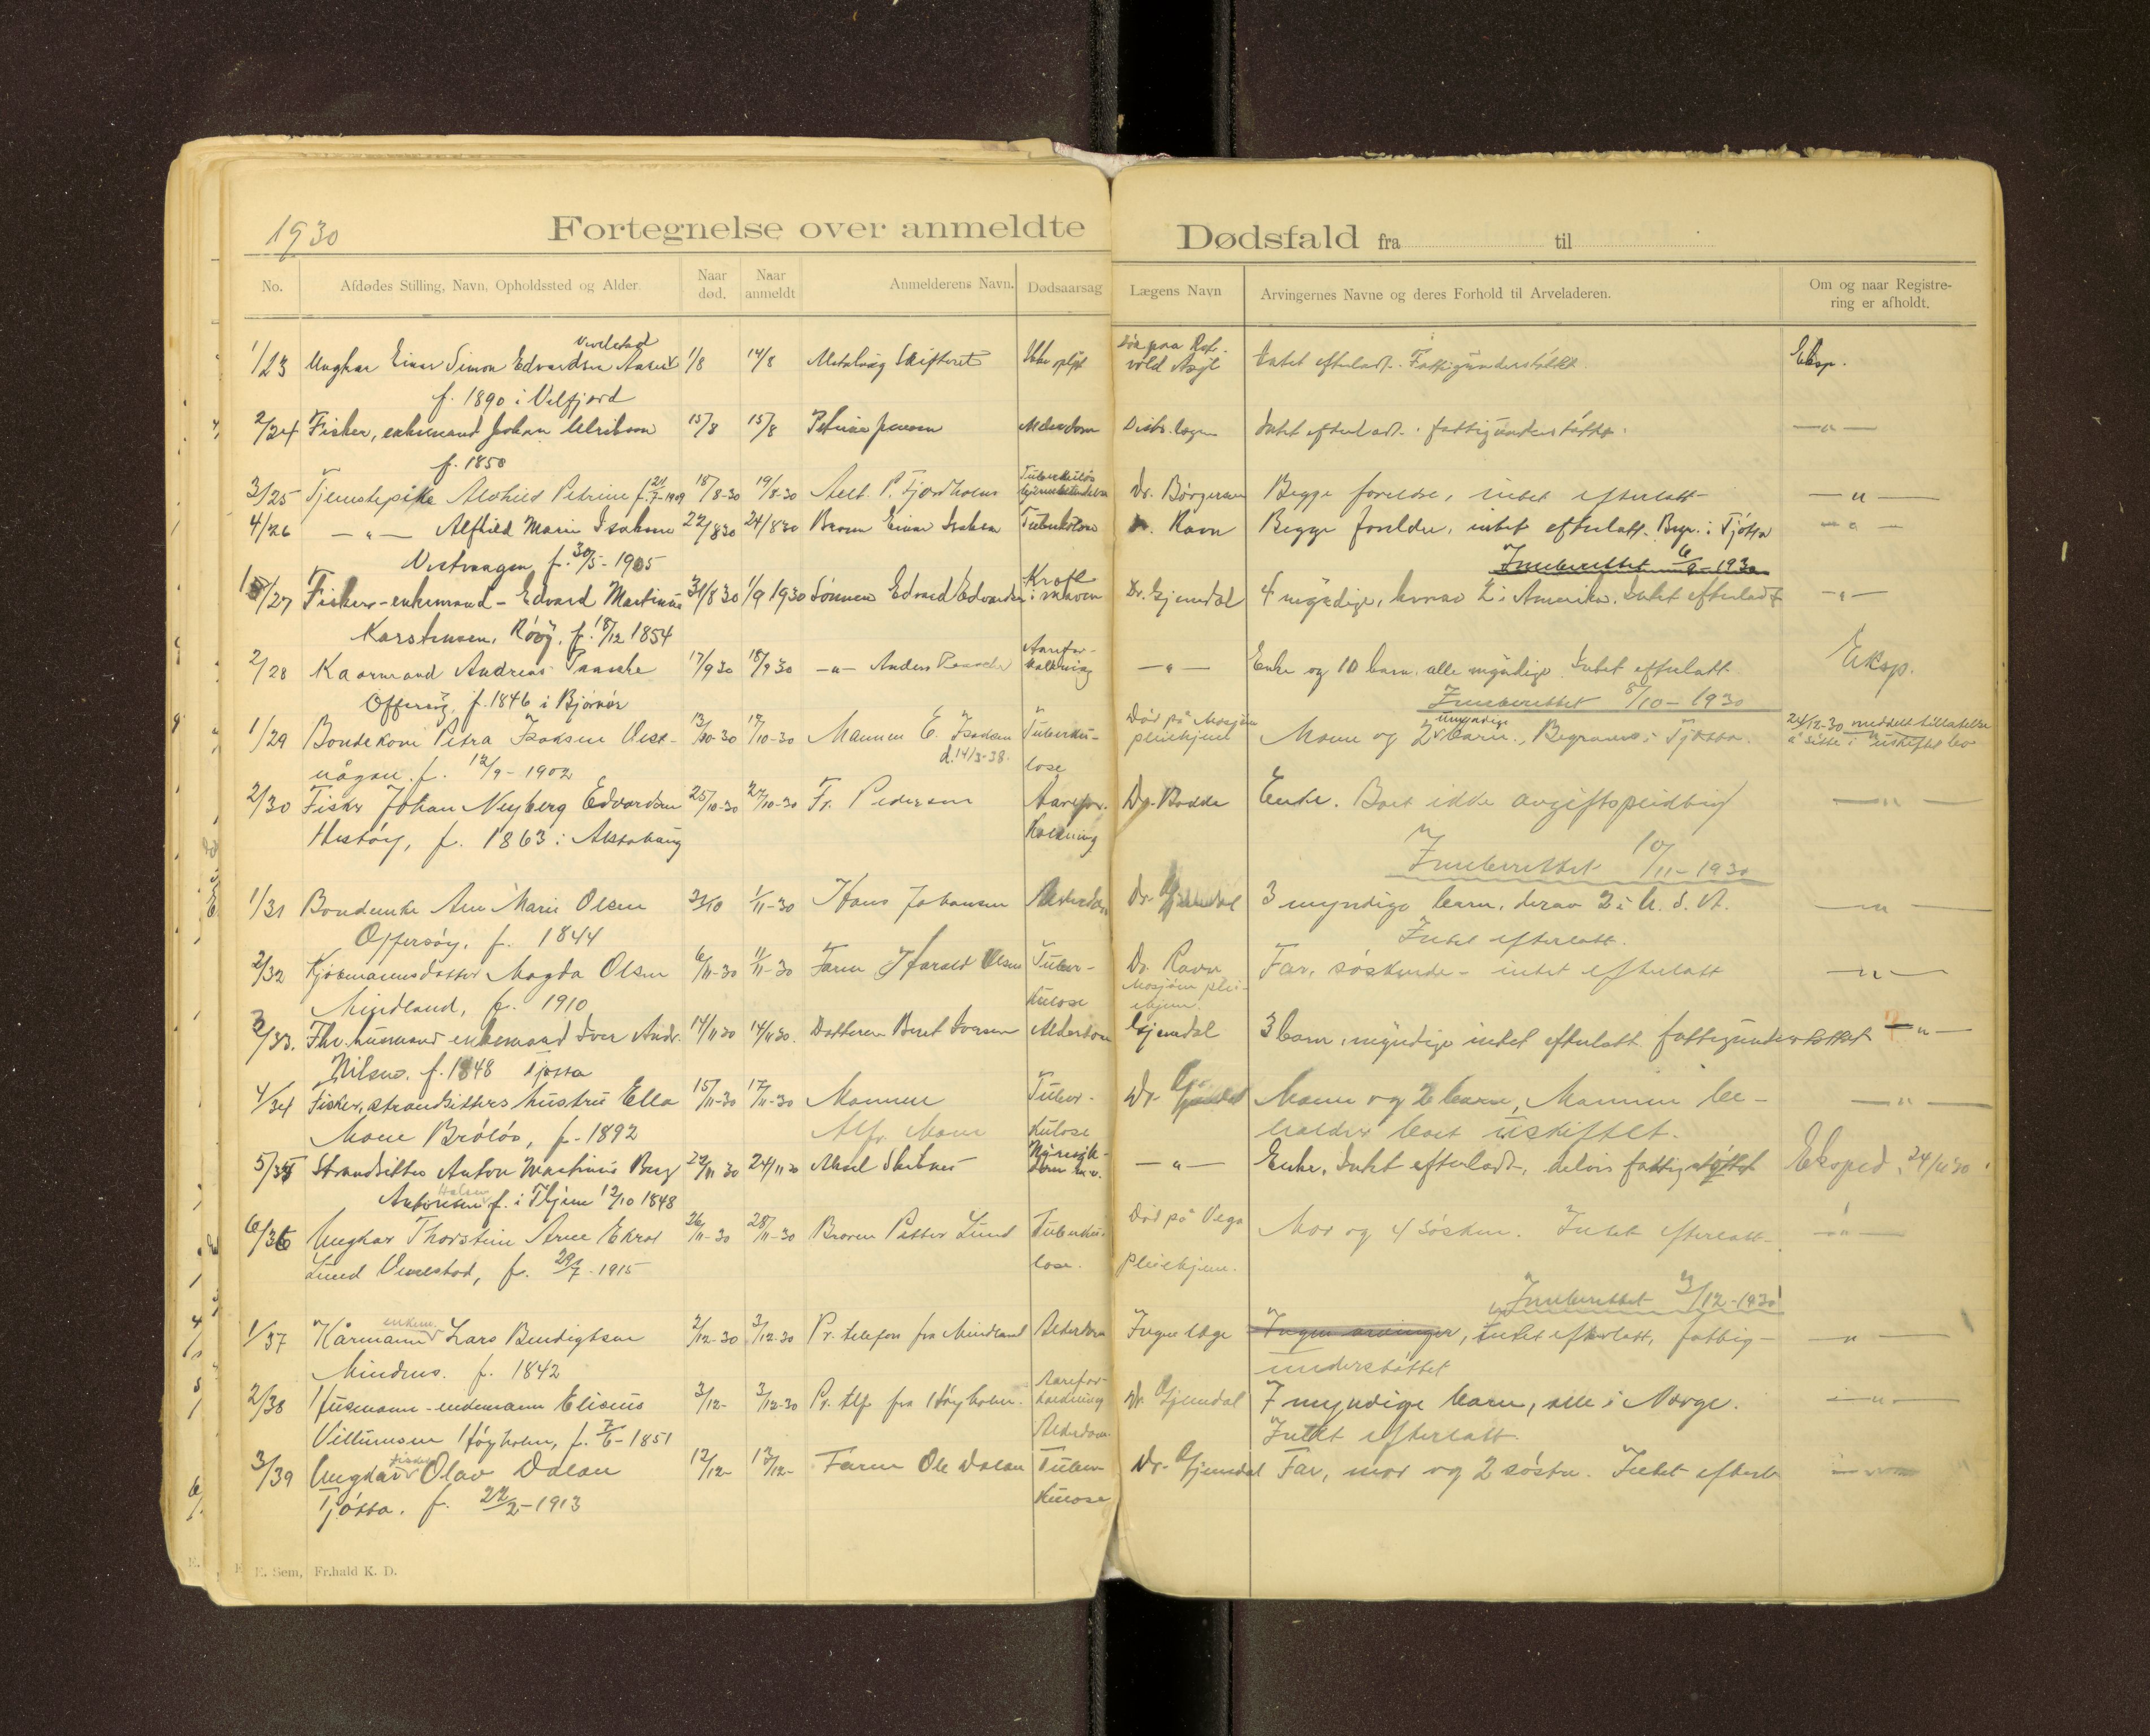 1930
Fortegnelse over anmeldte Dødsfald fra til
No. Afdødes Stilling, Navn, Opholdssted og Alder. Naar død. Naar anmeldt Anmelderens Navn. Dødsaarsag Lægens Navn Arvingernes Navne og deres Forhold til Arveladeren. Om og naar Registrering er afholdt.
1/23 Ungkar Einar Simon Edvardsen 1/8 14/8 Skifteret Intet efterladt. Fattigunderstøttet Eksp.
f. 1890 i Velfjord
2/24 Fisker, enkemand Johan Ulriksen 15/8 15/8 Petrine Jensen Alderdom Distr. lægen Intet efterladt. fattigunderstøttet. — " —
f. 1850
3/25 Tjenestepike Petrine f. 21/7-1909 18/8-30 19/8-30 P. Fjordholm Tuberkuløs hjernebetendelse Dr. Børgersen Begge foreldre, intet efterlatt — " —
4/26 — " — Alfhild Marie Isaksen 22/8 30 24/8 30 Broren Einar Isaksen Tuberkulose Dr. Ravn Begge foreldre, intet efterlatt. Begr. i Tjøtta — " —
f. 30/5-1905 Innberettet 6/9-1930
1/27 Fisker-enkemand-Edvard Martinus 31/8 30 1/9 1930 Sønnen Edvard Edvardsen Kræft i maven Dr. Gjendal 4 myndige, hvorav 2 i Amerika. Intet efterladt — " —
Karstensen, Røøy. f. 18/12 1854
2/28 Kaarmand Andreas Paasche 17/9 30 18/9 30 — " — Anders Paasche Aarefor- kalkning — " — Enke og 10 barn, alle myndige. Intet efterlatt Eksp.
Offersøy. f. 1846 i Bjørnør Innberettet 8/10-1930
1/29 Bondekone Petra Isaksen Vest- 13/10-30 17/10-30 Mannen E. Isaksen Tuberku- Død på Mosjøen pleiehjem Mann og 2 umyndige barn. Begraves i Tjøtta. 24/12-30 meddelt tillatelse å sitte i uskiftet bo
vågen. f. 12/9-1902 d. 14/3-38. lose
2/30 Fisker Johan Nyberg Edvardsen 25/10-30 27/10-30 Fr. Pedersen Aarefor- Dr. Bodde Enke. Boet ikke avgiftspliktig — " —
Hestøy, f. 1863 i Alstahaug kalkning
Innberettet 10/11-1930
1/31 Bondeenke Ane Marie Olsen 31/10 1/11-30 Hans Johansen Alderdom Dr. Gjendal 3 myndige barn, derav 2 i U.S.A. — " —
Offersøy. f. 1844 Intet efterlatt.
2/32 Kjøbmannsdatter Magda Olsen 6/11-30 11/11-30 Faren Harald Olsen Tuber- Dr. Ravn Far, søskende - intet efterlatt — " —
Mindland, f. 1910 kulose Mosjøen plei- ehjem.
3/33. Fhv. husmand enkemand Iver Andr. 14/11 30 14/11 30. Datteren Beret Iversen Alderdom Gjendal 3 barn, myndige intet efterlatt fattigunderstøttet — " —
Nilsen. f. 1848 Tjøtta
4/34 Fisker, strandsitters hustru Ella 15/11-30 17/11-30 Mannen Tuber- Dr. Gjendal Mann og 2 barn, Mannen be- — " —
Moen Brøløs, f. 1892 Alf. Moen kulose holder boet uskiftet.
5/35 Strandsitter Anton Martinus Berg 22/11 30 24/11 30 Aksel Skibnes Nyresyk- dom m.v. — " — Enke. Intet efterladt, delvis fattigstøttet Eksped. 24/11 30
Antonsen f. i Fhjem 12/10 1848
6/36 Ungkar Thorstein Arne Ekrol 26/11-30 28/11-30 Broren Petter Lund Tuberku- Død på Vega Mor og 4 søsken. Intet efterlatt — " —
Lund f. 29/7-1915 lose. pleiehjem.
Innberettet 3/12-1930
1/37 Kårmann enkem. Lars Bendigtsen 2/12-30 3/12-30 Pr. telefon fra Mindland Alderdom Ingen læge Ingen arvinger, Intet efterlatt, fattig- — " —
Mindnes. f. 1842 understøttet
2/38 Husmann-enkemann Elisæus 3/12- 3/12-30 Pr. tlf fra Høyholm. Aarefor- kalkning Dr. Gjendal 7 myndige barn, alle i Norge. — " —
Villumsen Høyholm, f. 7/6-1851 Alderdom. Intet efterlatt.
3/39 Ungkar fisker Olav Dalen 12/12- 13/12- Faren Ole Dalen Tuber- Dr. Gjendal Far, mor og 2 søstre. Intet efterl.
Tjøtta. f. 22/2-1913 kulose
E. Sem, Fr.hald K. D.